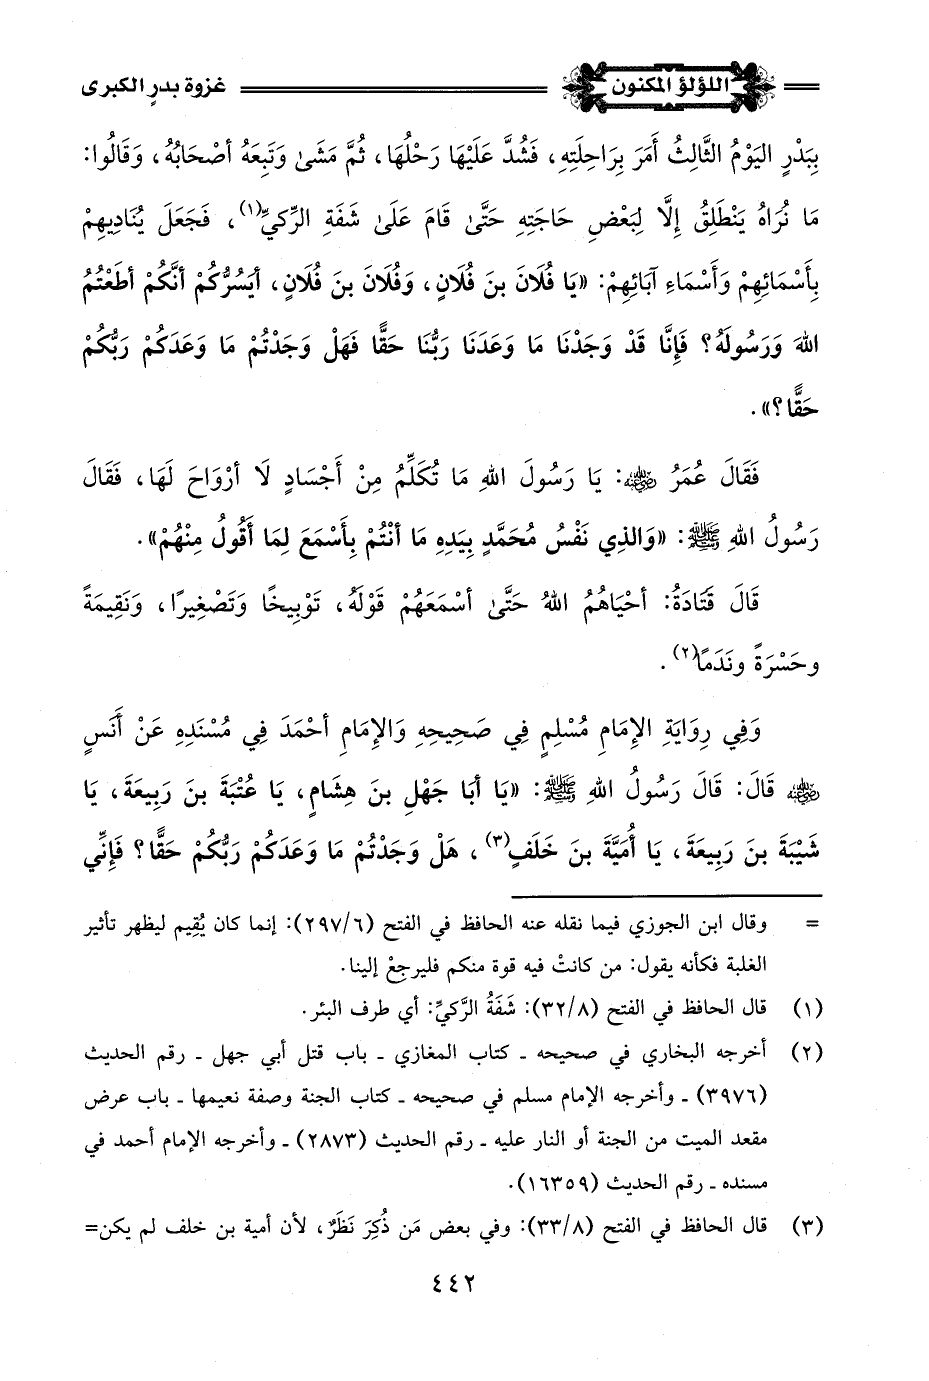 اللؤلؤ المكنون غزوة بدرٍ الكبرى
بِبَدْرٍ اليَوْمُ الثَّالِثُ أَمَرَ بِرَاحِلَتِهِ، فَشُدَّ عَلَيْهَا رَحْلُهَا، ثُمَّ مَشَىٰ وَتَبِعَهُ أصْحَابُهُ، وَقَالُوا:
مَا نُرَاهُ يَنْطَلِقُ إِلَّا لِبَعْضِ حَاجَتِهِ حَتَّىٰ قَامَ عَلَىٰ شَفَةِ الرَّكِيِّ(١)، فَجَعَلَ يُنَادِيهِمْ
بِأَسْمَائِهِمْ وَأَسْمَاءِ آبَائِهِمْ: «يَا فُلَانَ بنَ فُلَانٍ، وَفُلَانَ بنَ فُلَانٍ، أيَسُرُّكُمْ أنَّكُمْ أطَعْتُمُ
اللهَ وَرَسُولَهُ؟ فَإِنَّا قَدْ وَجَدْنَا مَا وَعَدَنَا رَبُّنَا حَقًّا فَهَلْ وَجَدْتُمْ مَا وَعَدَكُمْ رَبُّكُمْ
حَقًّا؟».
فَقَالَ عُمَرُ رضي الله عنه: يَا رَسُولَ اللهِ مَا تُكَلِّمُ مِنْ أَجْسَادٍ لَا أرْوَاحَ لَهَا، فَقَالَ
رَسُولُ اللهِ ﷺ: «وَالذِي نَفْسُ مُحَمَّدٍ بِيَدِهِ مَا أنْتُمْ بِأَسْمَعَ لِمَا أَقُولُ مِنْهُمْ».
قَالَ قَتَادَةُ: أحْيَاهُمُ اللهُ حَتَّىٰ أسْمَعَهُمْ قَوْلَهُ، تَوْبِيخًا وَتَصْغِيرًا، وَنَقِيمَةً
وحَسْرَةً ونَدَمًا(٢).
وَفِي رِوَايَةِ الإِمَامِ مُسْلِمٍ فِي صَحِيحِهِ وَالإِمَامِ أحْمَدَ فِي مُسْنَدِهِ عَنْ أَنَسٍ
رضي الله عنه قَالَ: قَالَ رَسُولُ اللهِ ﷺ: «يَا أبَا جَهْلِ بنَ هِشَامٍ، يَا عُتْبَةَ بنَ رَبِيعَةَ، يَا
شَيْبَةَ بنَ رَبِيعَةَ، يَا أُمَيَّةَ بنَ خَلَفٍ(٣)، هَلْ وَجَدْتُمْ مَا وَعَدَكُمْ رَبُّكُمْ حَقًّا؟ فَإِنِّي
= وقال ابن الجوزي فيما نقله عنه الحافظ في الفتح (٢٩٧/٦): إنما كان يُقِيم ليظهر تأثير
الغلبة فكأنه يقول: من كانتْ فيه قوة منكم فليرجعْ إلينا.
(١) قال الحافظ في الفتح (٣٢/٨): شَفَةُ الرَّكيِّ: أي طرف البئر.
(٢) أخرجه البخاري في صحيحه ـ كتاب المغازي ـ باب قتل أبي جهل ـ رقم الحديث
(٣٩٧٦) ـ وأخرجه الإمام مسلم في صحيحه ـ كتاب الجنة وصفة نعيمها ـ باب عرض
مقعد الميت من الجنة أو النار عليه ـ رقم الحديث (٢٨٧٣) ـ وأخرجه الإمام أحمد في
مسنده ـ رقم الحديث (١٦٣٥٩).
(٣) قال الحافظ في الفتح (٣٣/٨): وفي بعض مَن ذُكِرَ نَظَرٌ، لأن أمية بن خلف لم يكن=
٤٤٢